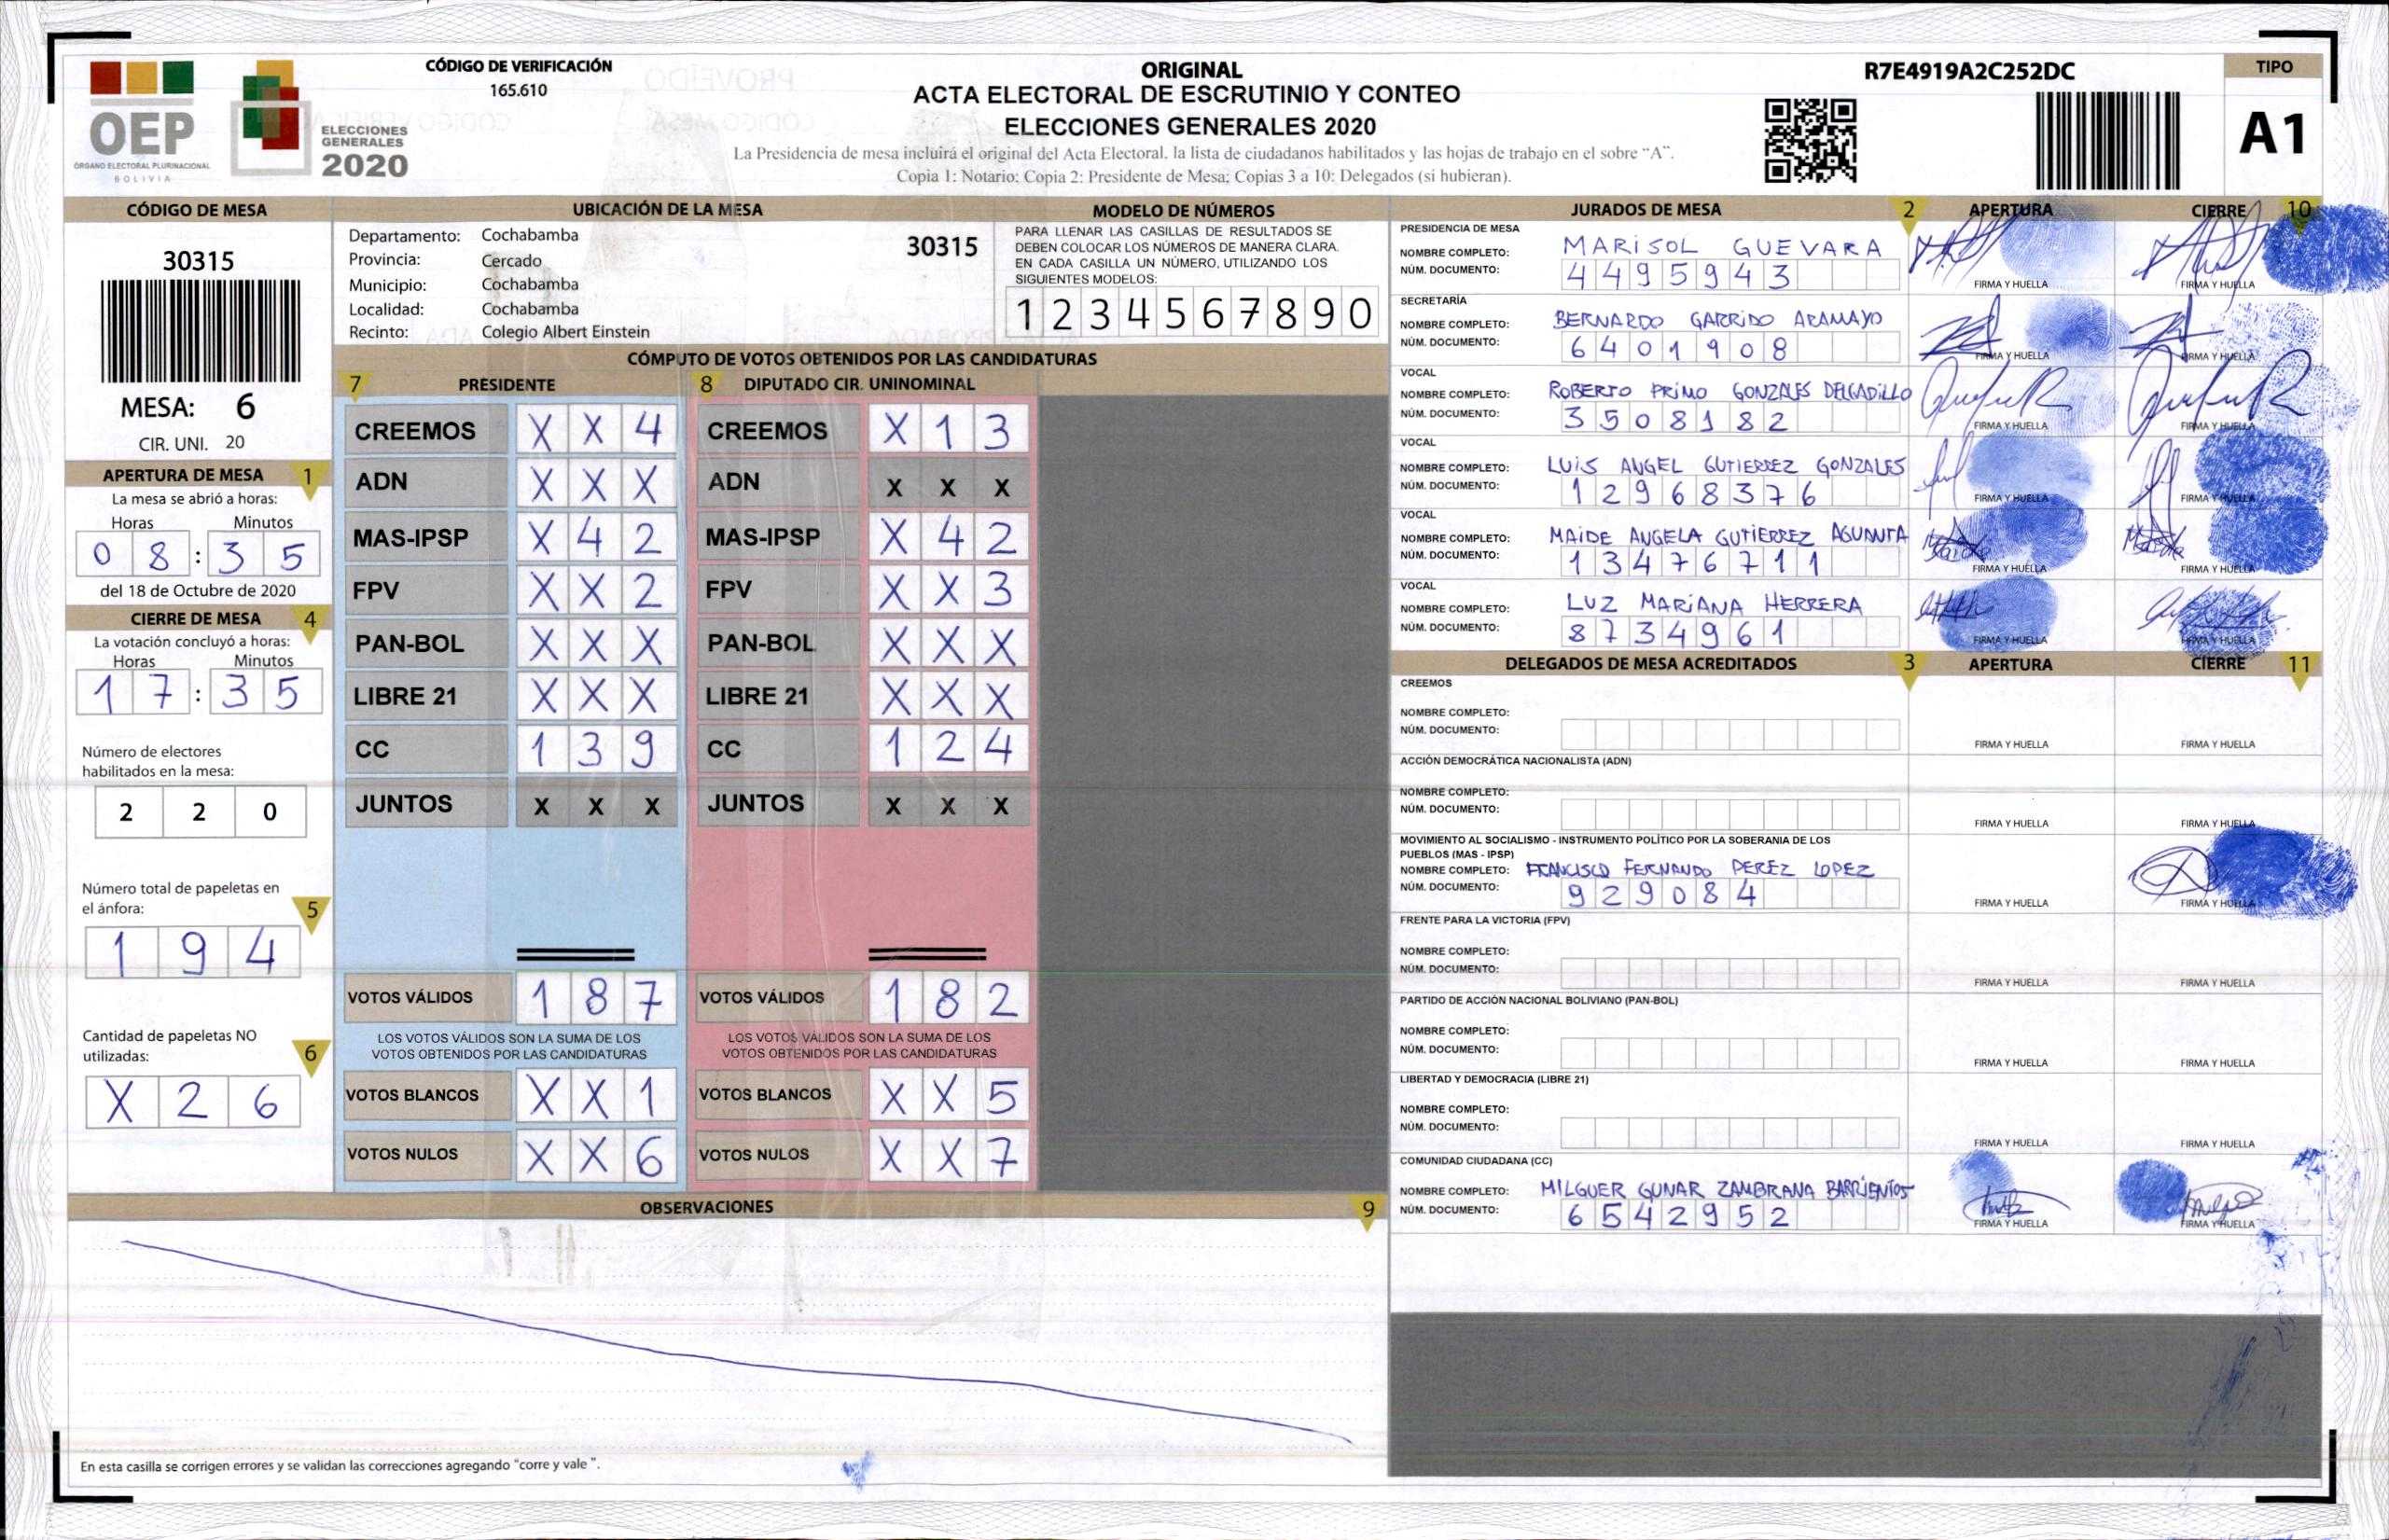 OEP
ÓRGANO ELECTORAL PLURINACIONAL
BOLIVIA
ELECCIONES
GENERALES
2020
CÓDIGO DE VERIFICACIÓN
165.610
ORIGINAL
ACTA ELECTORAL DE ESCRUTINIO Y CONTEO
ELECCIONES GENERALES 2020
La Presidencia de mesa incluirá el original del Acta Electoral, la lista de ciudadanos habilitados y las hojas de trabajo en el sobre “A”.
Copia 1: Notario; Copia 2: Presidente de Mesa; Copias 3 a 10: Delegados (si hubieran).
R7E4919A2C252DC
TIPO
A1
CÓDIGO DE MESA
30315
MESA: 6
CIR. UNI. 20
APERTURA DE MESA 1
La mesa se abrió a horas:
Horas Minutos
0 8 : 3 5
del 18 de Octubre de 2020
CIERRE DE MESA 4
La votación concluyó a horas:
Horas Minutos
1 7 : 3 5
Número de electores
habilitados en la mesa:
2 2 0
Número total de papeletas en
el ánfora: 5
1 9 4
Cantidad de papeletas NO
utilizadas: 6
X 2 6
UBICACIÓN DE LA MESA
Departamento: Cochabamba
Provincia: Cercado
Municipio: Cochabamba
Localidad: Cochabamba
Recinto: Colegio Albert Einstein
30315
MODELO DE NÚMEROS
PARA LLENAR LAS CASILLAS DE RESULTADOS SE
DEBEN COLOCAR LOS NÚMEROS DE MANERA CLARA.
EN CADA CASILLA UN NÚMERO, UTILIZANDO LOS
SIGUIENTES MODELOS:
1 2 3 4 5 6 7 8 9 0
CÓMPUTO DE VOTOS OBTENIDOS POR LAS CANDIDATURAS
7 PRESIDENTE 8 DIPUTADO CIR. UNINOMINAL
CREEMOS X X 4 CREEMOS X 1 3
ADN X X X ADN X X X
MAS-IPSP X 4 2 MAS-IPSP X 4 2
FPV X X 2 FPV X X 3
PAN-BOL X X X PAN-BOL X X X
LIBRE 21 X X X LIBRE 21 X X X
CC 1 3 9 CC 1 2 4
JUNTOS X X X JUNTOS X X X
VOTOS VÁLIDOS 1 8 7 VOTOS VÁLIDOS 1 8 2
LOS VOTOS VÁLIDOS SON LA SUMA DE LOS LOS VOTOS VÁLIDOS SON LA SUMA DE LOS
VOTOS OBTENIDOS POR LAS CANDIDATURAS VOTOS OBTENIDOS POR LAS CANDIDATURAS
VOTOS BLANCOS X X 1 VOTOS BLANCOS X X 5
VOTOS NULOS X X 6 VOTOS NULOS X X 7
OBSERVACIONES 9
En esta casilla se corrigen errores y se validan las correcciones agregando “corre y vale ”.
JURADOS DE MESA 2 APERTURA CIERRE 10
PRESIDENCIA DE MESA
NOMBRE COMPLETO: MARISOL GUEVARA
NÚM. DOCUMENTO: 4 4 9 5 9 4 3 FIRMA Y HUELLA FIRMA Y HUELLA
SECRETARÍA
NOMBRE COMPLETO: BERNARDO GARRIDO ARAMAYO
NÚM. DOCUMENTO: 6 4 0 1 9 0 8 FIRMA Y HUELLA FIRMA Y HUELLA
VOCAL
NOMBRE COMPLETO: ROBERTO PRIMO GONZALES DELGADILLO
NÚM. DOCUMENTO: 3 5 0 8 1 8 2 FIRMA Y HUELLA FIRMA Y HUELLA
VOCAL
NOMBRE COMPLETO: LUIS ANGEL GUTIERREZ GONZALES
NÚM. DOCUMENTO: 1 2 9 6 8 3 7 6 FIRMA Y HUELLA FIRMA Y HUELLA
VOCAL
NOMBRE COMPLETO: MAIDE ANGELA GUTIERREZ AGUANTA
NÚM. DOCUMENTO: 1 3 4 7 6 7 1 1 FIRMA Y HUELLA FIRMA Y HUELLA
VOCAL
NOMBRE COMPLETO: LUZ MARIANA HERRERA
NÚM. DOCUMENTO: 8 7 3 4 9 6 1 FIRMA Y HUELLA FIRMA Y HUELLA
DELEGADOS DE MESA ACREDITADOS 3 APERTURA CIERRE 11
CREEMOS
NOMBRE COMPLETO:
NÚM. DOCUMENTO: FIRMA Y HUELLA FIRMA Y HUELLA
ACCIÓN DEMOCRÁTICA NACIONALISTA (ADN)
NOMBRE COMPLETO:
NÚM. DOCUMENTO: FIRMA Y HUELLA FIRMA Y HUELLA
MOVIMIENTO AL SOCIALISMO - INSTRUMENTO POLÍTICO POR LA SOBERANIA DE LOS
PUEBLOS (MAS - IPSP)
NOMBRE COMPLETO: FRANCISCO FERNANDO PEREZ LOPEZ
NÚM. DOCUMENTO: 9 2 9 0 8 4 FIRMA Y HUELLA FIRMA Y HUELLA
FRENTE PARA LA VICTORIA (FPV)
NOMBRE COMPLETO:
NÚM. DOCUMENTO: FIRMA Y HUELLA FIRMA Y HUELLA
PARTIDO DE ACCIÓN NACIONAL BOLIVIANO (PAN-BOL)
NOMBRE COMPLETO:
NÚM. DOCUMENTO: FIRMA Y HUELLA FIRMA Y HUELLA
LIBERTAD Y DEMOCRACIA (LIBRE 21)
NOMBRE COMPLETO:
NÚM. DOCUMENTO: FIRMA Y HUELLA FIRMA Y HUELLA
COMUNIDAD CIUDADANA (CC)
NOMBRE COMPLETO: MILGUER GUNAR ZAMBRANA BARRIENTOS
NÚM. DOCUMENTO: 6 5 4 2 9 5 2 FIRMA Y HUELLA FIRMA Y HUELLA